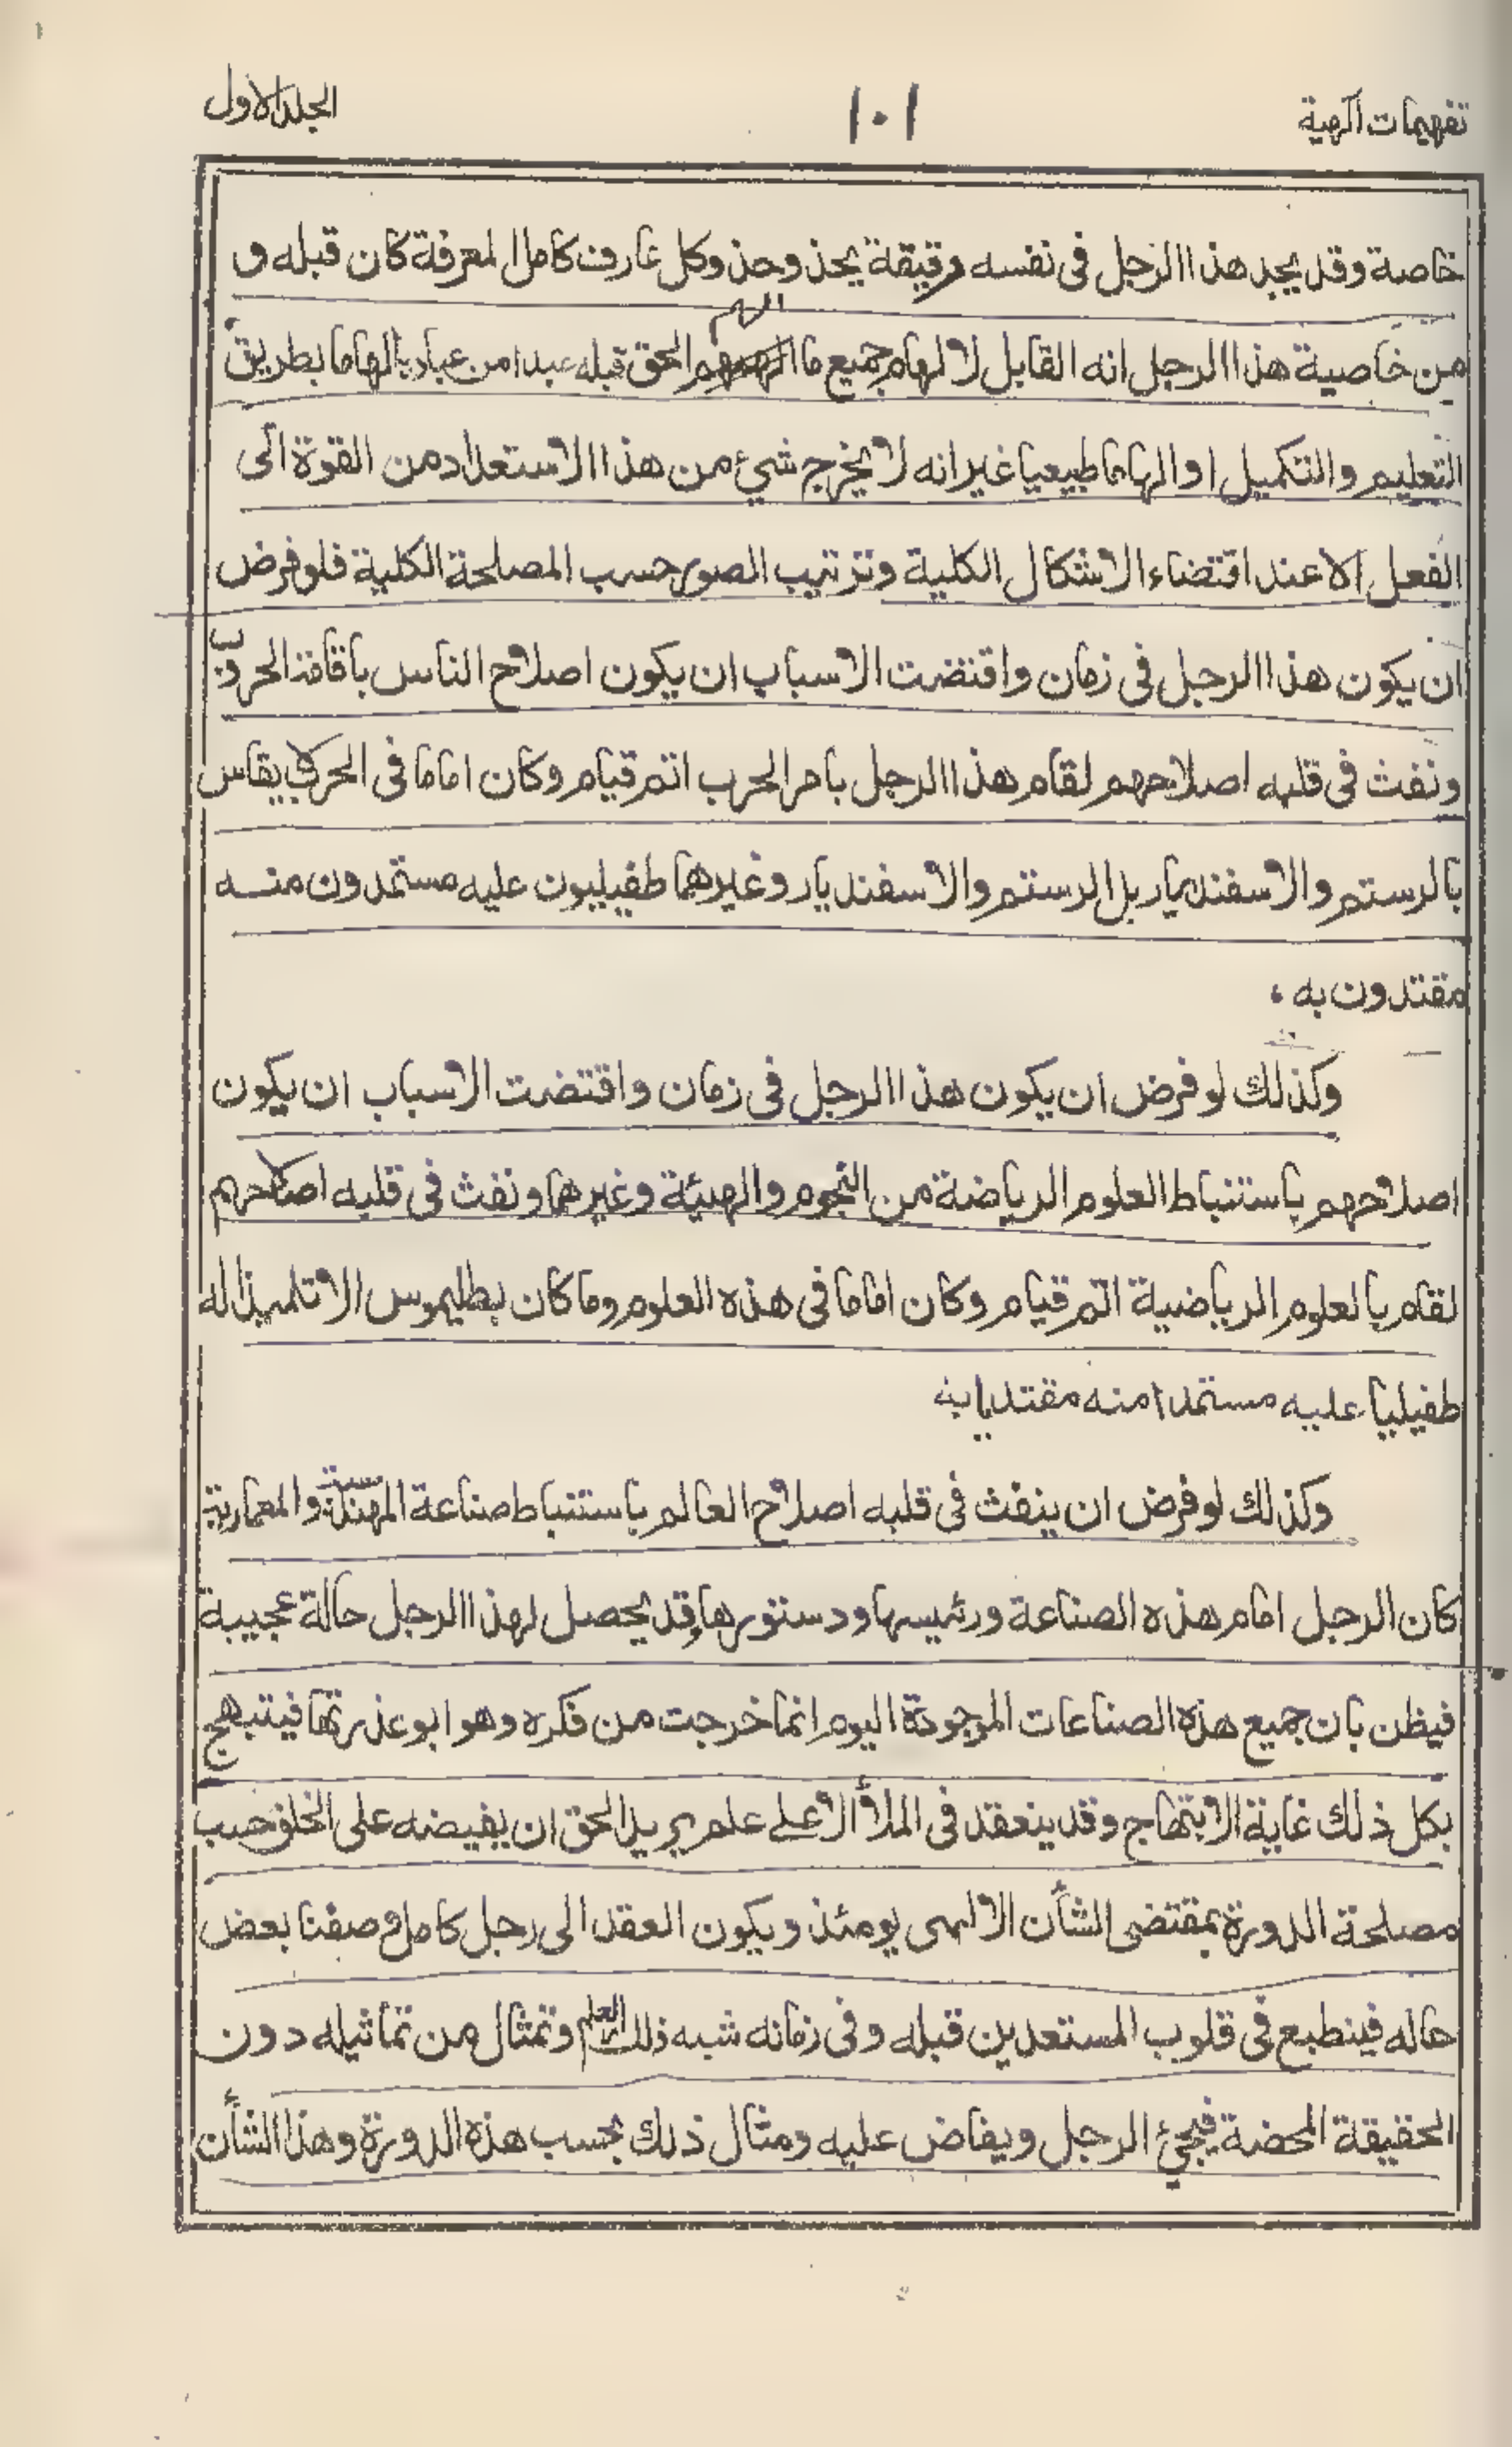 تفهيمات الٰهية
١٠١
الجلد الاول
خاصة وقد يجد هذا الرجل فى نفسه ورقيقة يحذ وحذ وكل عارف كامل المعرفة كان قبله و
من خاصية هذا الرجل انه القابل لالهام جميع ما الهم الحق قبله عبدا من عباده الهاما بطريق
التعليم والتكميل او الهاما طبيعيا غير انه لا يخرج شيء من هذا الاستعداد من القوة الى
الفعل الا عند اقتضاء الاشكال الكلية وترتيب الصور حسب المصلحة الكلية فلو فرض
ان يكون هذا الرجل فى زمان واقتضت الاسباب ان يكون اصلاح الناس باقامة الحروب
ونفث فى قلبه اصلاحهم لقام هذا الرجل بامر الحرب اتم قيام وكان اماما فى الحرب يقاس
بالرستم والاسفنديار بل الرستم والاسفنديار وغيرهما طفيليون عليه مستمدون منه
مقتدون به ،
وكذلك لو فرض ان يكون هذا الرجل فى زمان واقتضت الاسباب ان يكون
اصلاحهم باستنباط العلوم الرياضة من النجوم والهيئة وغيرهما ونفث فى قلبه اصلاحهم
لقام بالعلوم الرياضية اتم قيام وكان اماما فى هذه العلوم وما كان بطليموس الا تلميذا له
طفيليا عليه مستمدا منه مقتديا به
وكذلك لو فرض ان ينفث فى قلبه اصلاح العالم باستنباط صناعة الهندسة والمعمارية
كان الرجل امام هذه الصناعة ورئيسها ودستورها وقد يحصل لهذا الرجل حالة عجيبة
فيظن بان جميع هذه الصناعات الموجودة اليوم انما خرجت من فكره وهو ابو عذرتها فيتبهج
بكل ذلك غاية الابتهاج وقد ينعقد فى الملأ الاعلے علم يريد الحق ان يفيضه على الخلق حسب
مصلحة الدورة بمقتضى الشأن الالهى يومئذ ويكون العقد الى رجل كامل وصفنا بعض
حاله فينطبع فى قلوب المستعدين قبله وفى زمانه شبه ذلك العلم وتمثال من تماثيله دون
الحقيقة المحضة فيجيئ الرجل ويفاض عليه ومثال ذلك بحسب هذه الدورة وهذا الشأن